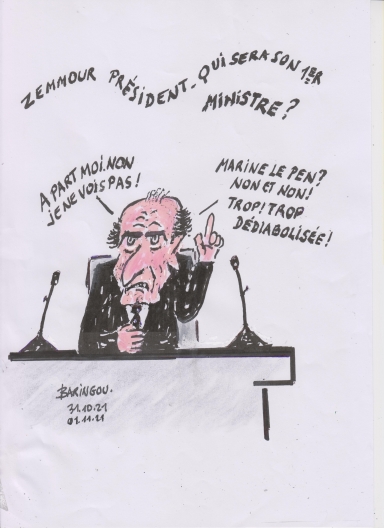 ZEMMOUR PRÉSIDENT - QUI SERA SON 1ER
MINISTRE?
A PART MOI. NON
JE NE VOIS PAS!
MARINE LE PEN?
NON ET NON!
TROP! TROP
DÉDIABOLISÉE!
BARINGOU.
31.10.21
01.11.21